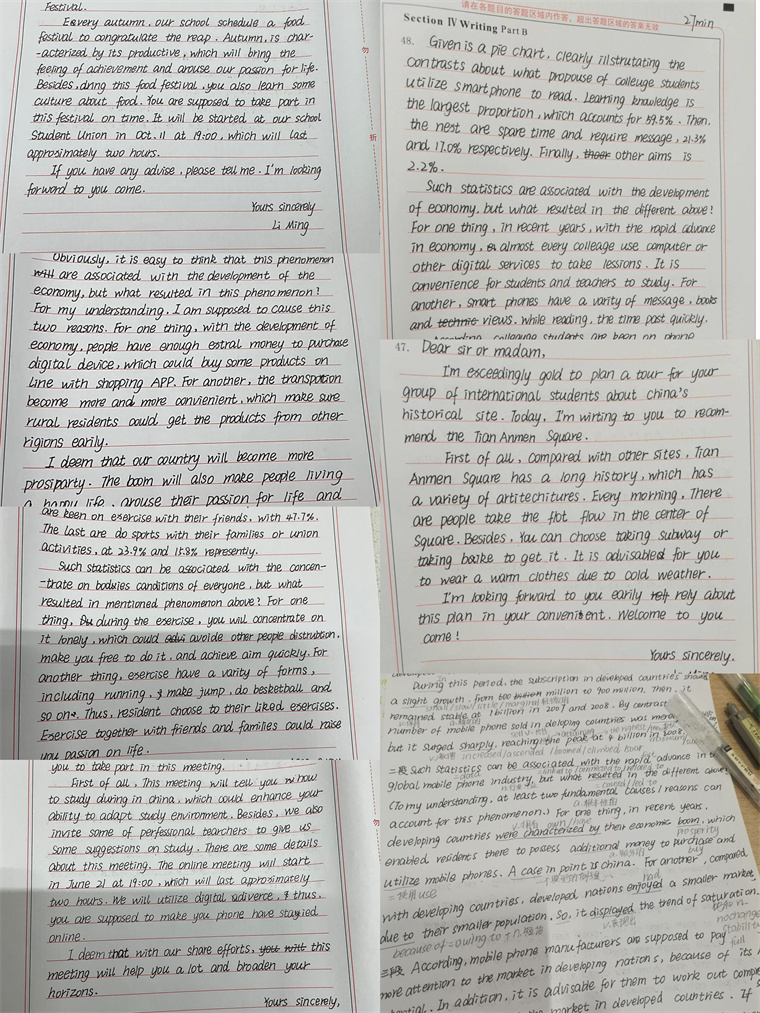 Festival.
Every autumn, our school schedule a food
festival to congratulate the reap. Autumn, is char-
-acterized by its productive, which will bring the
feeling of achievement and arouse our passion for life.
Besides, dring this food festival, you also learn some
culture about food. You are supposed to take part in
this festival on time. It will be started at our school
Student Union in Oct. 11 at 19:00, which will last
approximately two hours.
If you have any advise, please tell me. I'm looking
forward to you come.
Yours sincerely
Li Ming
Obviously, it is easy to think that this phenomenon
are associated with the development of the
economy, but what resulted in this phenomenon?
For my understanding, I am supposed to cause this
two reasons. For one thing, with the development of
economy, people have enough estral money to purchase
digital device, which could buy some products on
line with shopping APP. For another, the transpotion
become more and more convienient, which make sure
rural residents could get the products from other
rigions earily.
I deem that our country will become more
prosiparty. The boom will also make people living
a happy life, arouse their passion for life and
are keen on exercise with their friends, with 47.7%.
The last are do sports with their families or union
activities, at 23.9% and 15.8% represently.
Such statistics can be associated with the concen-
-trate on bodies conditions of everyone, but what
resulted in mentioned phenomenon above? For one
thing, during the exercise, you will concentrate on
it lonely, which could avoide other people distrubtion,
make you free to do it, and achieve aim quickly. For
another thing, exercise have a varity of forms,
including running, make jump, do besketball and
so on. Thus, resident choose to their liked exercises.
Exercise together with friends and families could raise
you passion on life.
you to take part in this meeting.
First of all, This meeting will tell you how
to study during in china, which could enhance your
ability to adapt study environment. Besides, we also
invite some of perfessional tearchers to give us
some suggestions on study. There are some details
about this meeting. The online meeting will start
in June 21 at 19:00, which will last approzimately
two hours. We will utilize digital adiverce, & thus,
you are supposed to make you phone have stayied
online.
I deem that with our share efforts, this
meeting will help you a lot and broaden your
horizons.
Yours sincerely,
请在各题目的答题区域内作答，超出答题区域的答案无效
Section Ⅳ Writing Part B
27min
48. Given is a pie chart, clearly illstrutating the
contrasts about what propouse of colleuge students
utilize smartphone to read. Learning knowledge is
the largest proportion, which accounts for 59.5%. Then.
the nest are spare time and require message, 21.3%
and 17.0% respectively. Finally, other aims is
2.2%.
Such statistics are associated with the development
of economy, but what resulted in the different above?
For one thing, in recent years, with the rapid advance
in economy, almost every colleage use computer or
other digital services to take lessions. It is
convenience for students and teachers to study. For
another, smart phones have a varity of message, books
and views. while reading, the time past quickly.
47. Dear sir or madam,
I'm exceedingly gold to plan a tour for your
group of international students about china's
historical site. Today, I'm wirting to you to recom-
mend the Tian Anmen Square.
First of all, Compared with other sites, Tian
Anmen Square has a long history, which has
a variety of artitechitures. Every morning, There
are people take the flot flow in the center of
Square. Besides, You can choose taking subway or
taking baike to get it. It is advisabled for you
to wear a warm clothes due to cold weather.
I'm looking forward to you earily rely about
this plan in your convenient. Welcome to you
come!
Yours sincerely.
During this period, the subscription in developed countries
a slight growth. from 600 million to 900 million. Then, it
remained stable at 1 billion in 2007 and 2008. By contrast
number of mobile phone sold in deloping countries was
but it surged sharply, reaching the peak at 4 billion in 2008.
increased/ascended/boomed/climbed
二段 Such Statistics can be associated with the rapid advance in
global mobile phone industry, but what resulted in the different above
(To my understanding, at least two fundamental causes/reasons can
account for this phenomenon.) For one thing, in recent years,
developing countries were characterized by their economic boom, which
prosperity
enabled residents there to possess additional money to purchase and
buy
utilize mobile phones. A case in point is China. For another, compared
=使用 use
with developing countries, developed nations enjoyed a smaller market
had
due to their smaller population. So, it displayed the trend of saturation.
because of = owing to + n.
三段 According, mobile phone manufacturers are supposed to pay
more attention to the market in developing nations, because of its
In addition, it is advisable for them to work out
market in developed countries. If